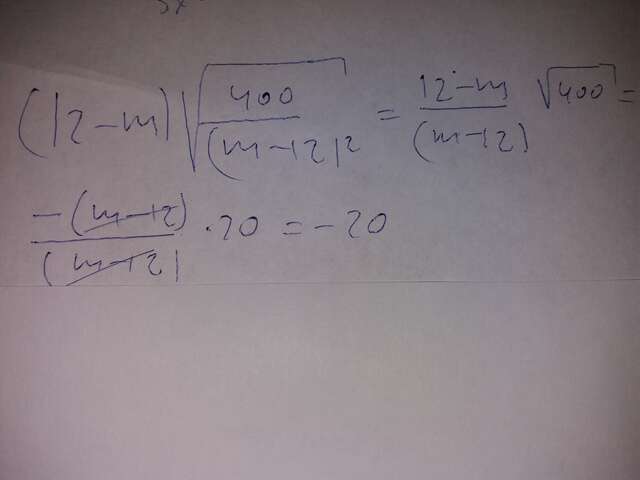 (12-m)√(400/(m-12)²) = (12-m)/(m-12) √400 =
-(m-12)/(m-12) · 20 = -20